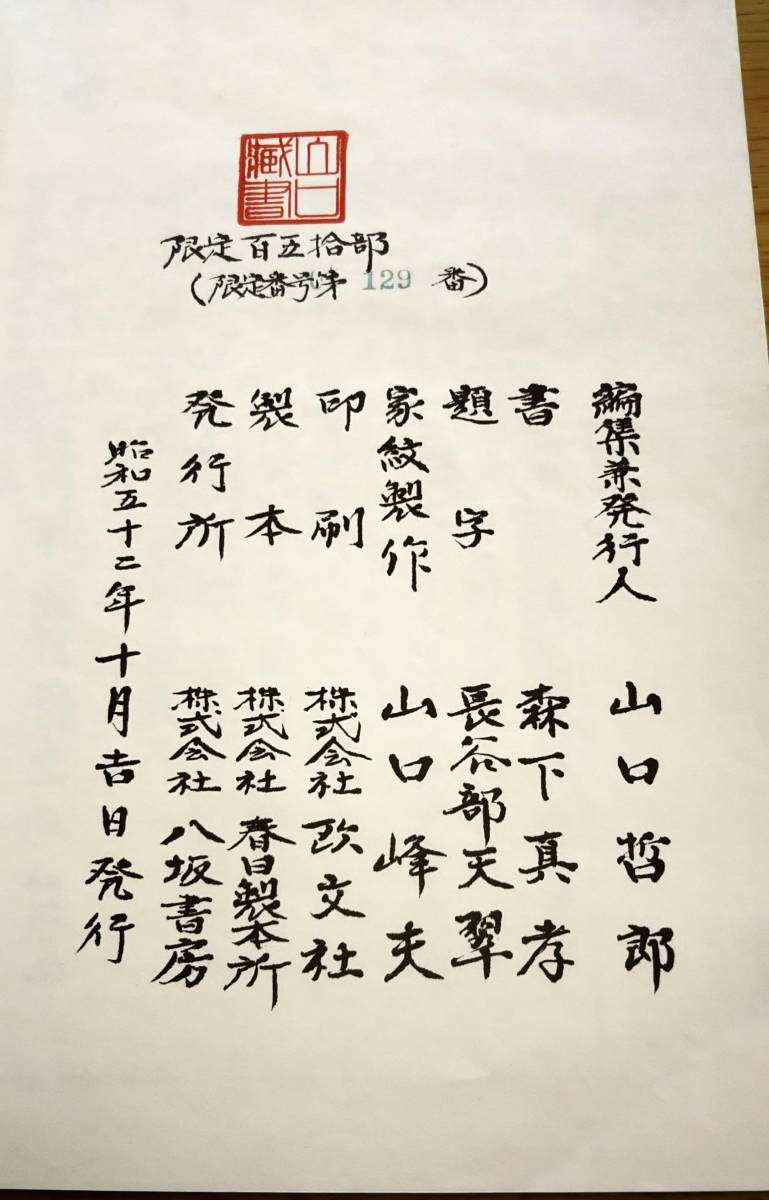 山口藏書
限定百五拾部
(限定番号第 129 番)
編集兼発行人 山口哲郎
書 森下真孝
題字 長谷部天翠
家紋製作 山口峰夫
印刷 株式会社 欧文社
製本 株式会社 春日製本所
発行所 株式会社 八坂書房
昭和五十二年十月吉日発行